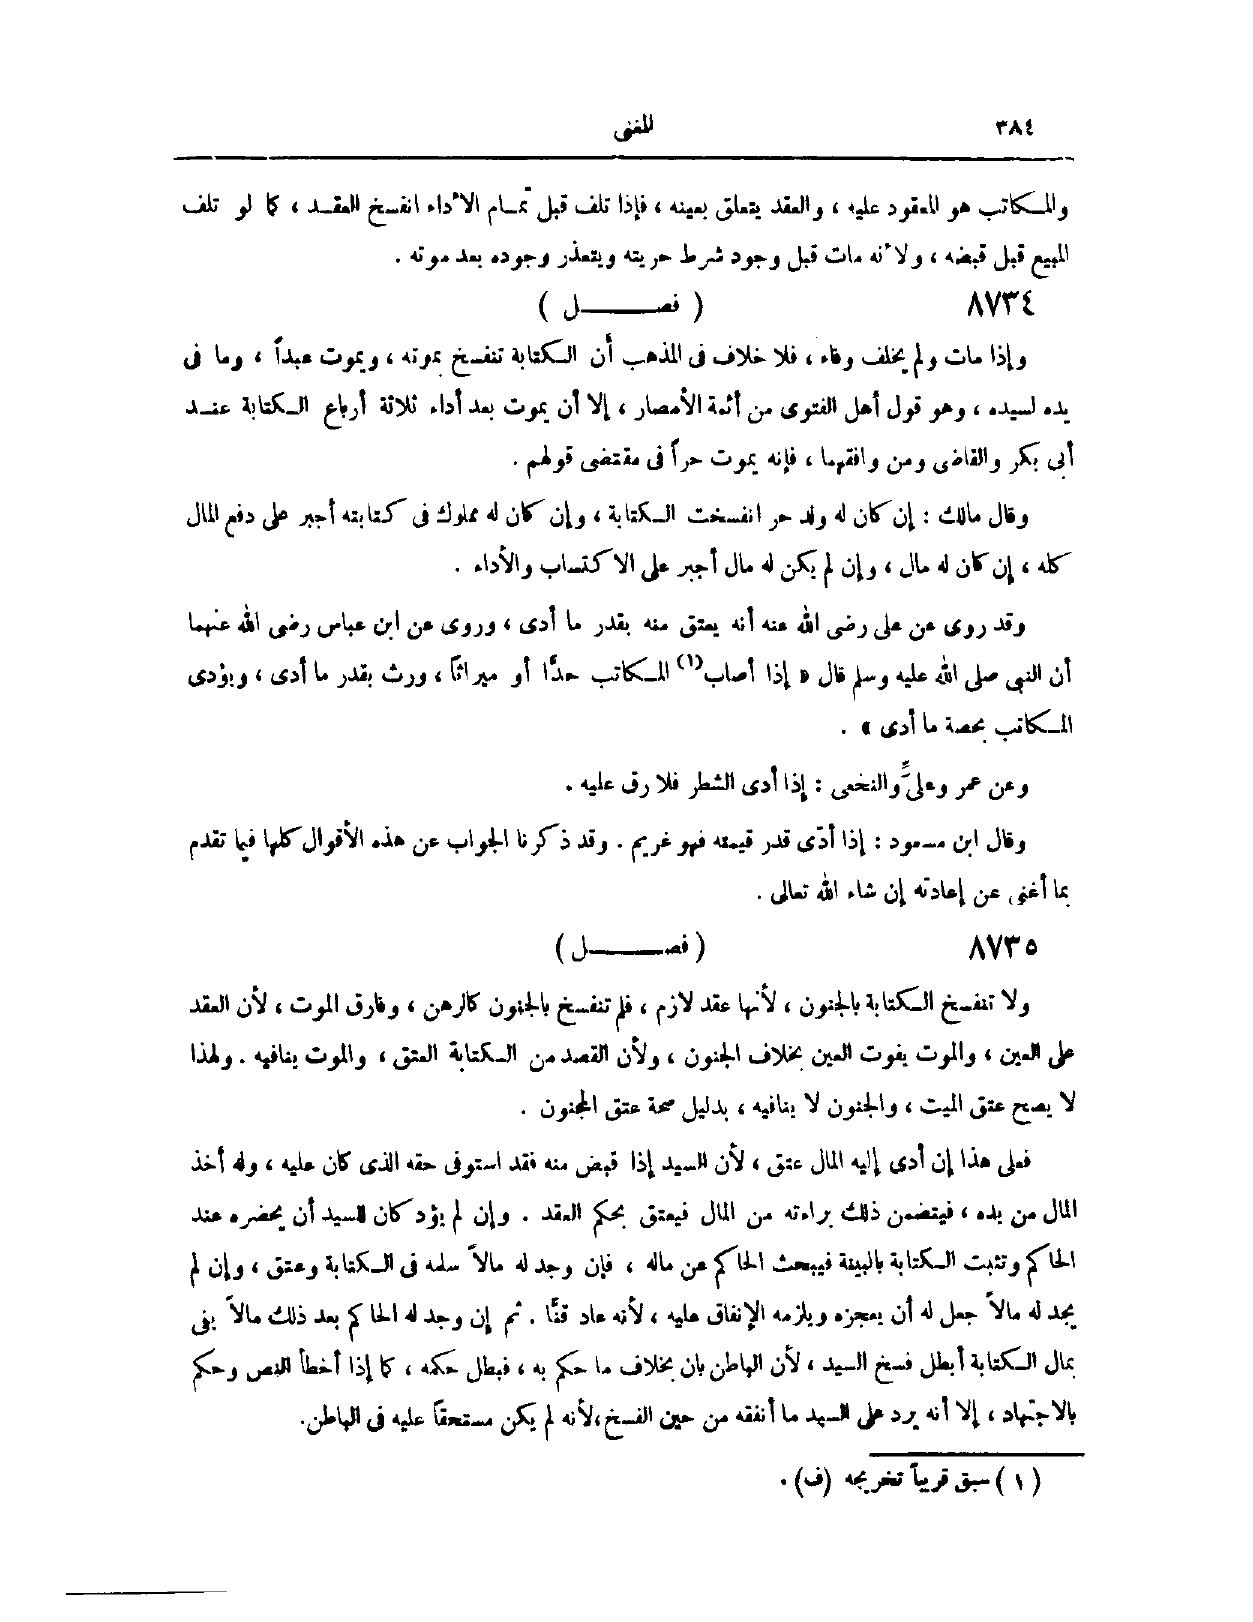 ٣٨٤ المغنى
والمكاتب هو المعقود عليه ، والعقد يتعلق بعينه ، فإذا تلف قبل تمام الأداء انفسخ العقد ، كما لو تلف
المبيع قبل قبضه ، ولأنه مات قبل وجود شرط حريته ويتعذر وجوده بعد موته .
٨٧٣٤ ( فصل )
وإذا مات ولم يخلف وفاء ، فلا خلاف فى المذهب أن الكتابة تنفسخ بموته ، ويموت عبداً ، وما فى
يده لسيده ، وهو قول أهل الفتوى من أئمة الأمصار ، إلا أن يموت بعد أداء ثلاثة أرباع الكتابة عند
أبى بكر والقاضى ومن وافقهما ، فإنه يموت حراً فى مقتضى قولهم .
وقال مالك : إن كان له ولد حر انفسخت الكتابة ، وإن كان له مملوك فى كتابته أجبر على دفع المال
كله ، إن كان له مال ، وإن لم يكن له مال أجبر على الاكتساب والأداء .
وقد روى عن على رضى الله عنه أنه يعتق منه بقدر ما أدى ، وروى عن ابن عباس رضى الله عنهما
أن النبى صلى الله عليه وسلم قال « إذا أصاب(١) المكاتب حدًّا أو ميراثاً ، ورث بقدر ما أدى ، ويؤدى
المكاتب بحصة ما أدى » .
وعن عمر وعلىٍّ والنخعى : إذا أدى الشطر فلا رق عليه .
وقال ابن مسعود : إذا أدّى قدر قيمته فهو غريم . وقد ذكرنا الجواب عن هذه الأقوال كلها فيما تقدم
بما أغنى عن إعادته إن شاء الله تعالى .
٨٧٣٥ ( فصل )
ولا تنفسخ الكتابة بالجنون ، لأنها عقد لازم ، فلم تنفسخ بالجنون كالرهن ، وفارق الموت ، لأن العقد
على العين ، والموت يفوت العين بخلاف الجنون ، ولأن القصد من الكتابة العتق ، والموت ينافيه . ولهذا
لا يصح عتق الميت ، والجنون لا ينافيه ، بدليل صحة عتق المجنون .
فعلى هذا إن أدى إليه المال عتق ، لأن السيد إذا قبض منه فقد استوفى حقه الذى كان عليه ، وله أخذ
المال من يده ، فيتضمن ذلك براءته من المال فيعتق بحكم العقد . وإن لم يؤد كان للسيد أن يحضره عند
الحاكم وتثبت الكتابة بالبينة فيبحث الحاكم عن ماله ، فإن وجد له مالاً سلمه فى الكتابة وعتق ، وإن لم
يجد له مالاً جعل له أن يعجزه ويلزمه الإنفاق عليه ، لأنه عاد قنًّا . ثم إن وجد له الحاكم بعد ذلك مالاً يفى
بمال الكتابة أبطل فسخ السيد ، لأن الباطن بان بخلاف ما حكم به ، فبطل حكمه ، كما إذا أخطأ النص وحكم
بالاجتهاد ، إلا أنه يرد على السيد ما أنفقه من حين الفسخ،لأنه لم يكن مستحقاً عليه فى الباطن.
( ١ ) سبق قريباً تخريجه (ف) .